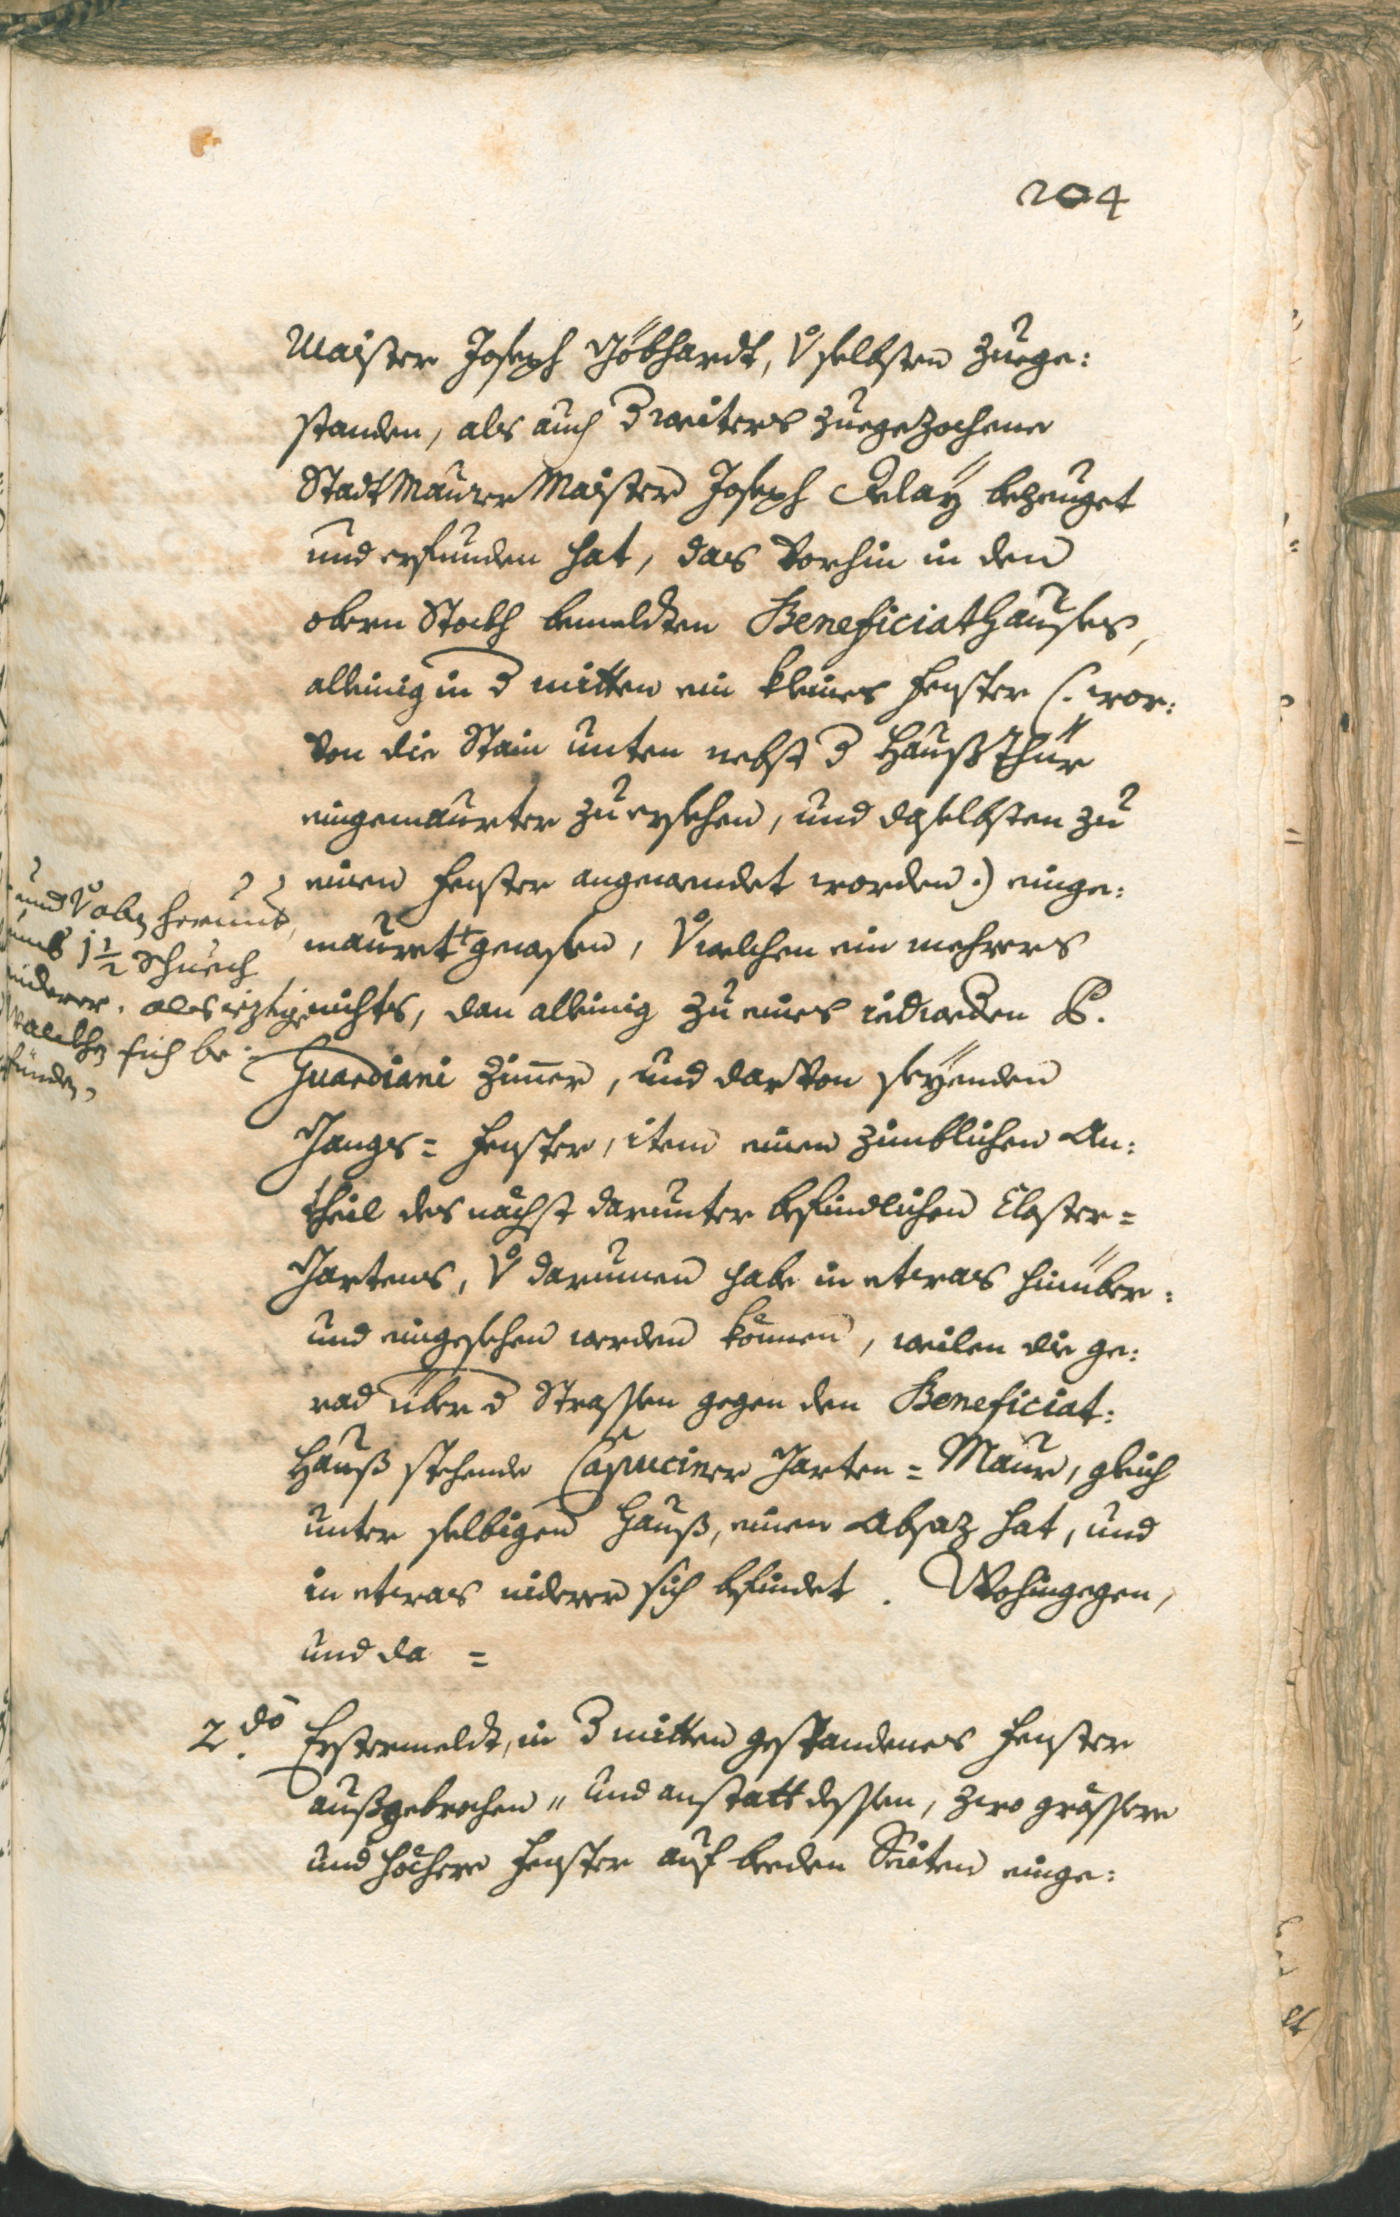 204
Maister Joseph Göbhardt, v selbsten zuege:
standen, als auch d weiters zuegezochene
Stadt Maurer Maister Joseph Delaÿ bezeuget
und erfunden hat, das vorhin in den
obern Stockh bemeldten Beneficiat Hauses,
alleinig in d mitten ein kleines Fenster (. wor:
von die Stain unten nebst d Hauß Thür
eingemaurter zu ersehen, und daselbsten zu
einen Fenster angewendet worden .) einge:
mauret + gewesen, v welchen ein mehrers
nichts, dan alleinig zu eines iedweden P.
Guardiani Zimer, und darvon seyenden
Gangs= Fenster, item einen zimblichen An:
theil des nächst darunter befindlichen Closter=
Gartens, v darumen habe in etwas hinüber:
und eingesehen werden können, weilen die ge:
rad über d Strassen gegen den Beneficiat:
Hauß stehende Capuciner Garten= Maur, gleich
unter selbigen Hauß, einen Absaz hat, und
in etwas niderer sich befindet. Wohingegen,
und da =
2do. Erstermeldt, in d mitten gestandenes Fenster
außgebrochen, und anstatt dessen, zwo grössere
und höchere Fenster auf beeden Seiten einge:
und v oben herunt,
umb 1 1/2 Schuech
niderer, als ietzige
sich be:
finden,